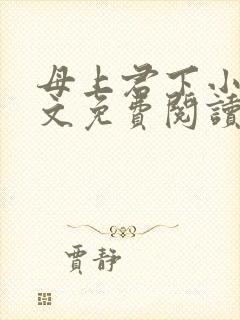 母上君下小
文免費閱讀
賈靜